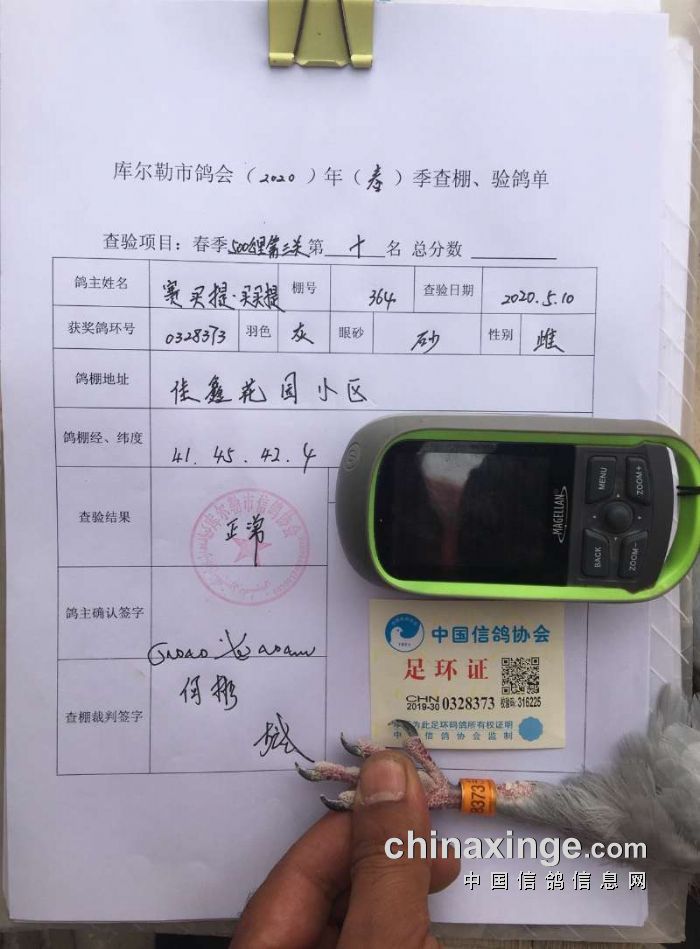 库尔勒市鸽会（2020）年（春）季查棚、验鸽单
查验项目：春季500公里第三关第十名 总分数
鸽主姓名 赛买提·买买提 棚号 364 查验日期 2020.5.10
获奖鸽环号 0328373 羽色 灰 眼砂 砂 性别 雌
鸽棚地址 佳鑫花园小区
鸽棚经、纬度 41.45.42.4
查验结果 正常
鸽主确认签字
查棚裁判签字 何彬
MAGELLAN
MENU
ZOOM+
BACK
ZOOM-
中国信鸽协会
足环证
CHN
2019-30 0328373 校验码: 316225
为此足环码鸽所有权证明
中 信鸽协会监制
8373
chinaxinge.com
中国信鸽信息网